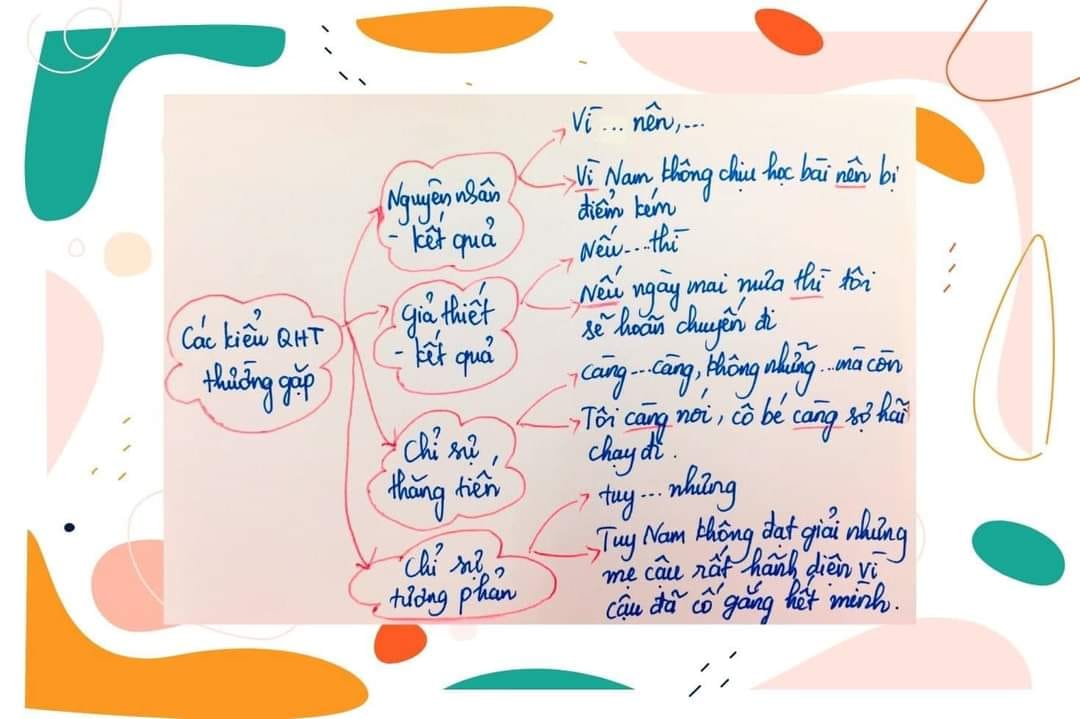 Các kiểu QHT
thường gặp
Nguyên nhân
- kết quả
Vì ... nên,...
Vì Nam không chịu học bài nên bị
điểm kém
Giả thiết
- kết quả
Nếu...thì
Nếu ngày mai mưa thì tôi
sẽ hoãn chuyến đi
Chỉ sự
thăng tiến
càng...càng, không những...mà còn
Tôi càng nói, cô bé càng sợ hãi
chạy đi.
Chỉ sự
tương phản
tuy... nhưng
Tuy Nam không đạt giải nhưng
mẹ cậu rất hãnh diện vì
cậu đã cố gắng hết mình.